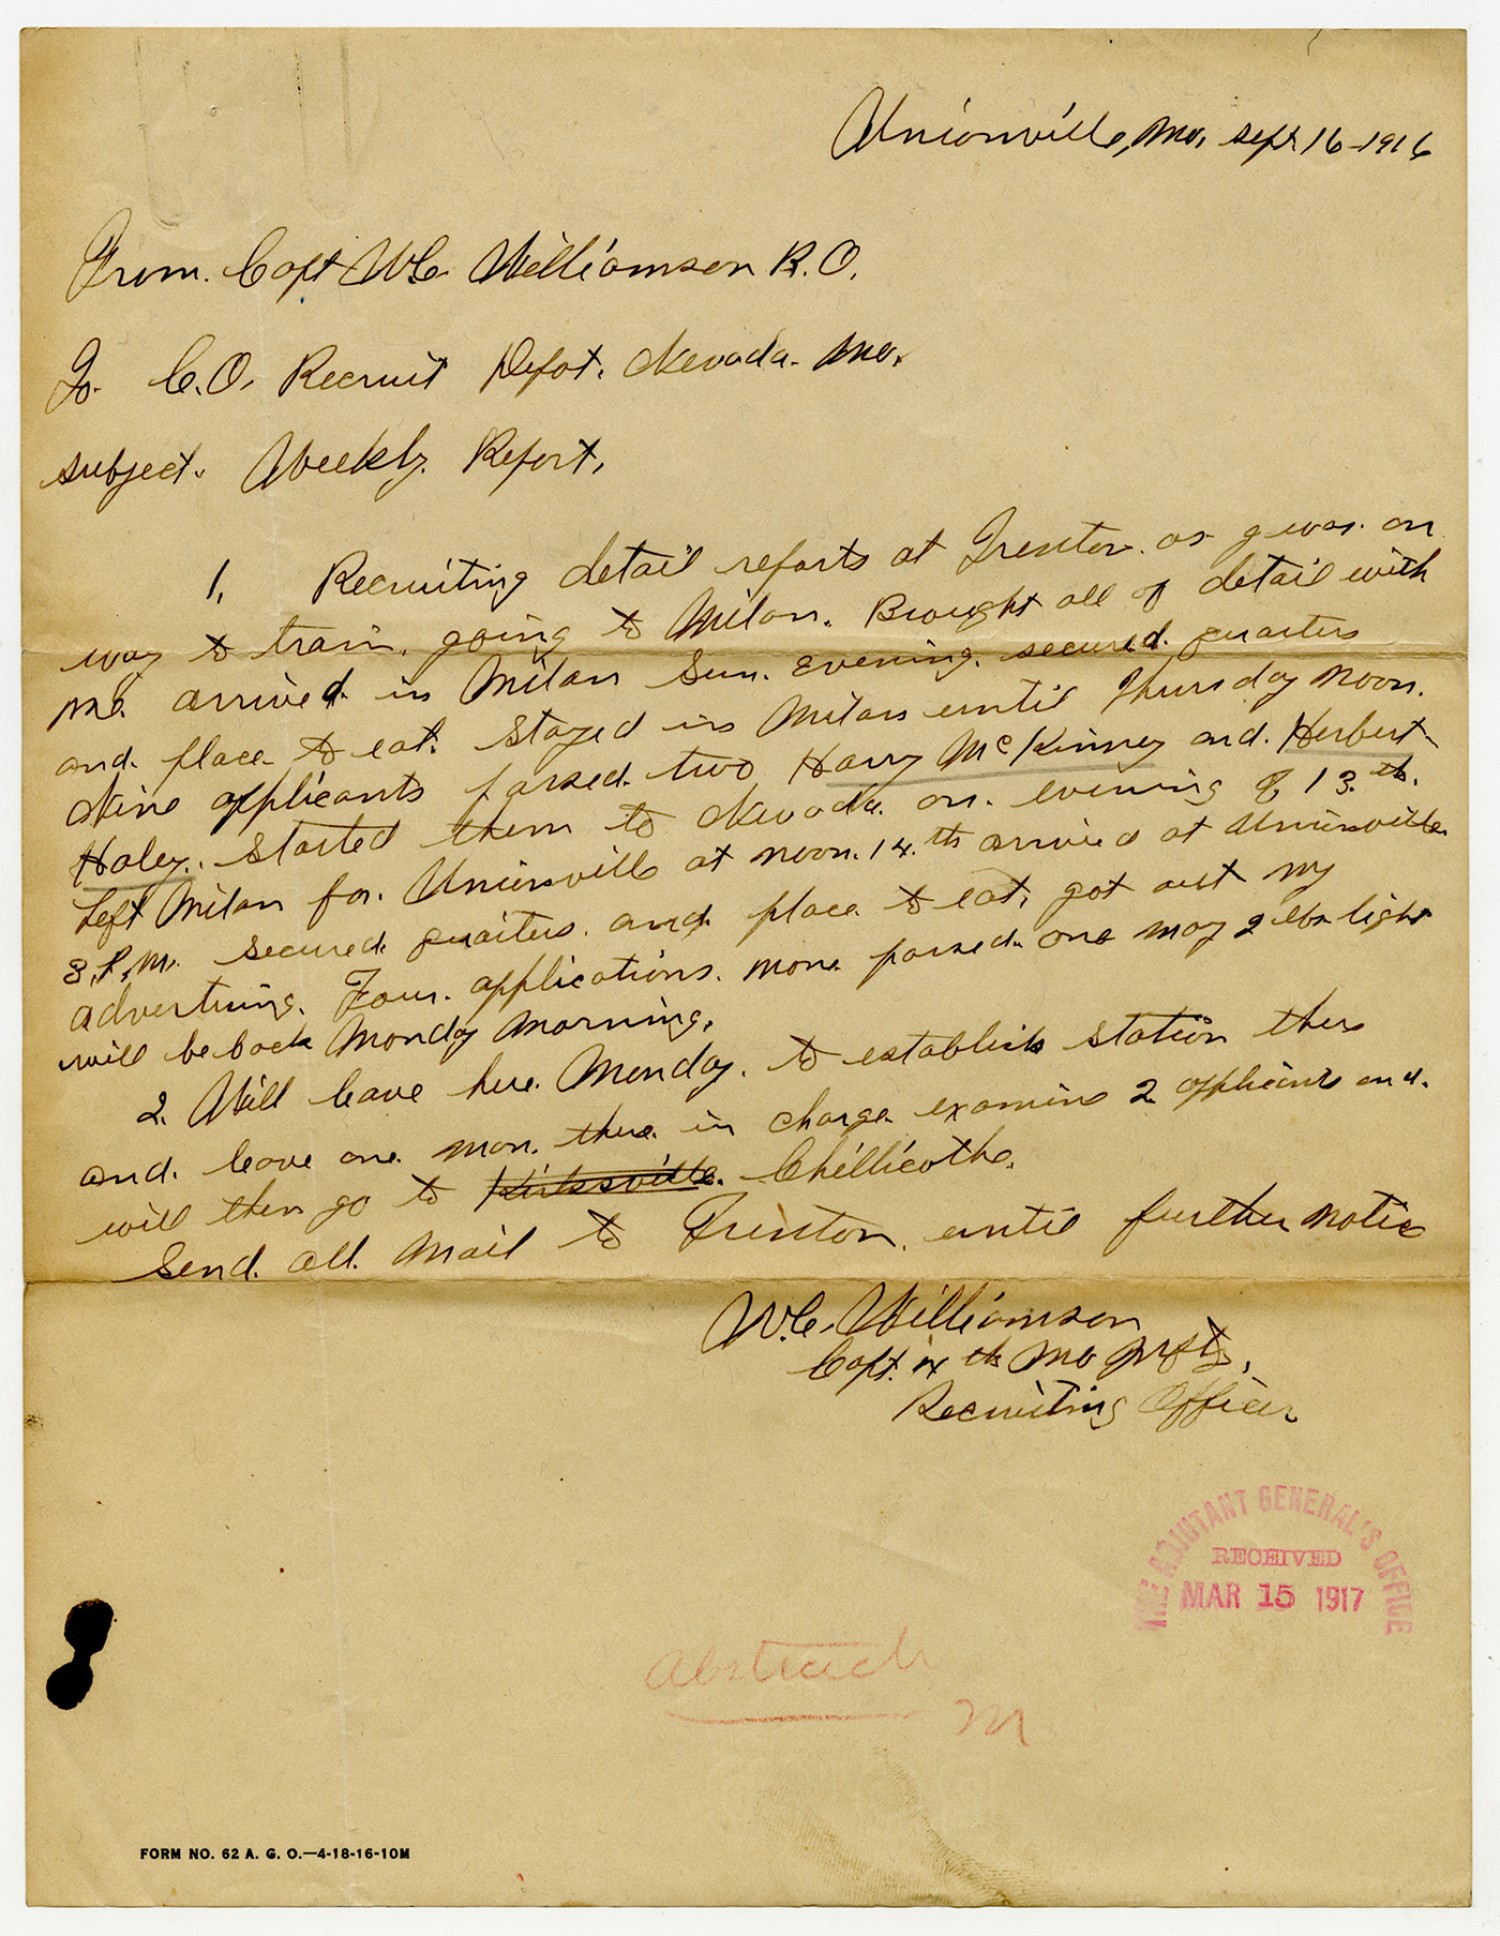 Unionville, Mo. Sept 16-1916
From. Capt W.C. Williamson R.O.
To. C.O. Recruit Depot. Nevada. Mo.
Subject. Weekly. Report.
1. Recruiting detail reports at Trenton. as I was. on
way to train. going to Milan. Brought all of detail with
me. arrived. in Milan Sun. evening. secured. quarters
and. place to eat. Stayed in Milan until Thursday noon.
Nine applicants passed. two Harry McKinney and. Herbert
Haley. Started them to Nevada. on. evening of 13.th.
Left Milan for. Unionville at noon. 14.th arrived at Unionville
3,P,M. secured. quarters. and. place to eat, got out my
advertising. Four. applications. none passed. one may 2 lbs light
will be back Monday Morning.
2. Will leave here. Monday. to establish station there
and. leave one man. there. in charge. examine 2 applicants and.
will then go to Kirksville. Chillicothe.
Send. all. Mail to Trenton. until further notice
W.C. Williamson
Capt. 4th Mo Inft.,
Recruiting Officer
THE ADJUTANT GENERAL'S OFFICE
RECEIVED
MAR 15 1917
Abstracted
M
FORM NO. 62 A. G. O.—4-18-16-10M